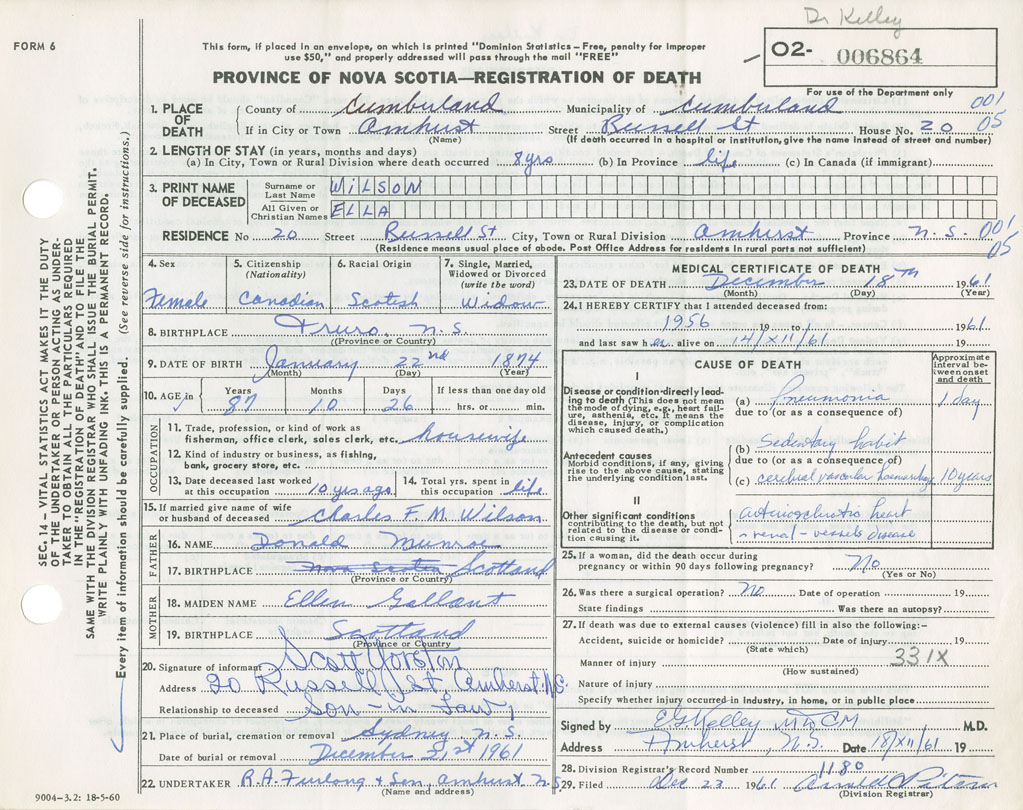 Dr Kelley
FORM 6
This form, if placed in an envelope, on which is printed "Dominion Statistics — Free, penalty for improper
use $50," and properly addressed will pass through the mail "FREE"
O2- 006864
For use of the Department only
PROVINCE OF NOVA SCOTIA—REGISTRATION OF DEATH
001
05
1. PLACE OF DEATH
County of Cumberland Municipality of Cumberland
If in City or Town Amherst Street Russell St House No. 20
(Name) (If death occurred in a hospital or institution, give the name instead of street and number)
2. LENGTH OF STAY (in years, months and days)
(a) In City, Town or Rural Division where death occurred 8 yrs (b) In Province life (c) In Canada (if immigrant)
3. PRINT NAME OF DECEASED
Surname or Last Name WILSON
All Given or Christian Names ELLA
RESIDENCE No 20 Street Russell St City, Town or Rural Division Amherst Province N.S. 001
05
(Residence means usual place of abode. Post Office Address for residents in rural parts not sufficient)
4. Sex
Female
5. Citizenship
(Nationality)
Canadian
6. Racial Origin
Scotish
7. Single, Married,
Widowed or Divorced
(write the word)
Widow
8. BIRTHPLACE Truro, N.S.
(Province or Country)
9. DATE OF BIRTH January 22nd 1874
(Month) (Day) (Year)
10. AGE in Years 87 Months 10 Days 26 If less than one day old
hrs. or min.
OCCUPATION
11. Trade, profession, or kind of work as
fisherman, office clerk, sales clerk, etc. housewife
12. Kind of industry or business, as fishing,
bank, grocery store, etc.
13. Date deceased last worked
at this occupation 10 yrs ago
14. Total yrs. spent in
this occupation life
15. If married give name of wife
or husband of deceased Charles F. M. Wilson
FATHER
16. NAME Donald Munroe
17. BIRTHPLACE Nova Scotia Scotland
(Province or Country)
MOTHER
18. MAIDEN NAME Ellen Gallant
19. BIRTHPLACE Scotland
(Province or Country)
20. Signature of informant Scott Yorston
Address 20 Russell St. Amherst N.S.
Relationship to deceased Son-in Law
21. Place of burial, cremation or removal Sydney N.S.
Date of burial or removal December 21st 1961
22. UNDERTAKER R.A. Furlong & Son, Amherst N.S.
(Name and address)
MEDICAL CERTIFICATE OF DEATH
23. DATE OF DEATH December 18TH 1961
(Month) (Day) (Year)
24. I HEREBY CERTIFY that I attended deceased from:
1956 19 to 1961
and last saw h er alive on 14/XII/61 19
CAUSE OF DEATH
Approximate
interval between onset
and death
I
Disease or condition directly leading to death (This does not mean
the mode of dying, e.g., heart failure, asthenia, etc. It means the
disease, injury, or complication
which caused death.)
(a) Pneumonia 1 day
due to (or as a consequence of)
Antecedent causes
Morbid conditions, if any, giving
rise to the above cause, stating
the underlying condition last.
(b) Sedentary habit
due to (or as a consequence of)
(c) cerebral vascular haemorrhage 10 years
II
Other significant conditions
contributing to the death, but not
related to the disease or condition causing it.
arteriosclerotic heart
& renal-vessels disease
25. If a woman, did the death occur during
pregnancy or within 90 days following pregnancy? No
(Yes or No)
26. Was there a surgical operation? No Date of operation 19
State findings Was there an autopsy?
27. If death was due to external causes (violence) fill in also the following:—
Accident, suicide or homicide? Date of injury 19
(State which)
Manner of injury 331X
(How sustained)
Nature of injury
Specify whether injury occurred in industry, in home, or in public place
Signed by E G Kelley MD CM M.D.
Address Amherst, N.S. Date 18/XII/61 19
28. Division Registrar's Record Number 1180
29. Filed Dec 23 1961
(Division Registrar)
SEC. 14 — VITAL STATISTICS ACT MAKES IT THE DUTY
OF THE UNDERTAKER OR PERSON ACTING AS UNDERTAKER TO OBTAIN ALL THE PARTICULARS REQUIRED
IN THE "REGISTRATION OF DEATH" AND TO FILE THE
SAME WITH THE DIVISION REGISTRAR WHO SHALL ISSUE THE BURIAL PERMIT.
WRITE PLAINLY WITH UNFADING INK. THIS IS A PERMANENT RECORD.
Every item of information should be carefully supplied. (See reverse side for instructions.)
9004-3.2: 18-5-60